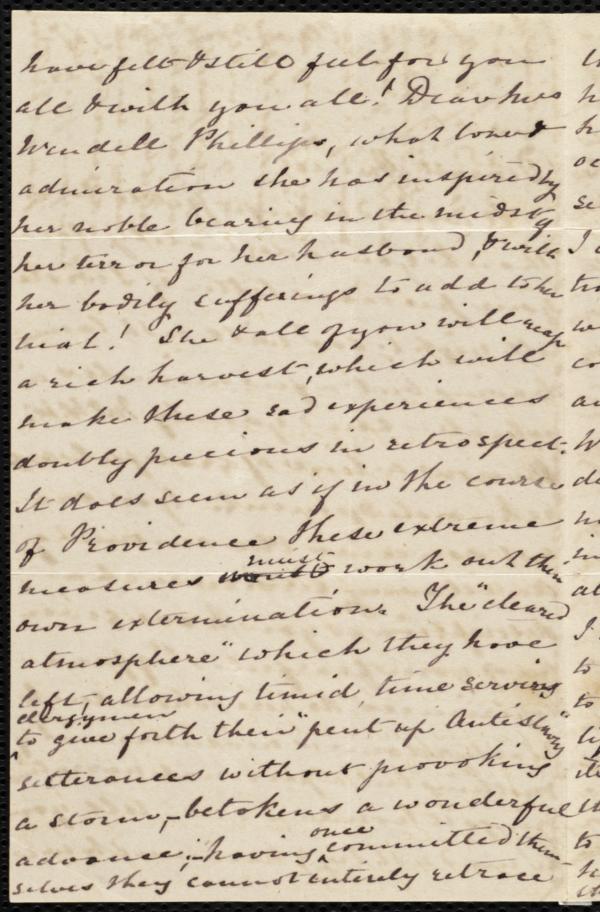 have felt & still feel for you
all & with you all! Dear Mrs
Wendell Phillips, what love &
admiration she has inspired by
her noble bearing in the midst of
her terror for her husband, & with
her bodily sufferings to add to her
trial! She & all of you will reap
a rich harvest, which will
make these sad experiences
doubly precious in retrospect.
It does seem as if in the course
of Providence these extreme
measures must work out their
own extermination. The "cleared
atmosphere" which they have
left, allowing timid, time serving
clergymen
to give forth their "pent up Antislavery"
utterances without provoking
a storm,- betokens a wonderful
advance;- having once committed them-
selves they cannot entirely retrace